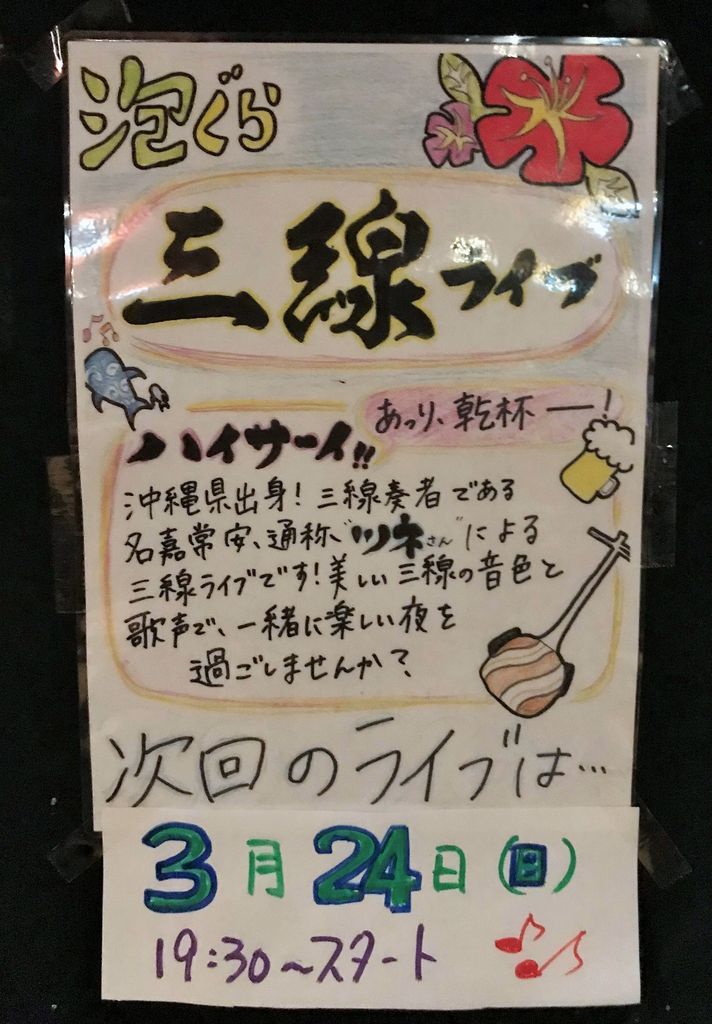 泡ぐら
三線ライブ
あっり、乾杯ー!
ハイサーイ!!
沖縄県出身!三線奏者である
名嘉常安、通称"ツネさん"による
三線ライブです!美しい三線の音色と
歌声で、一緒に楽しい夜を
過ごしませんか?
次回のライブは…
3月24日(日)
19:30~スタート